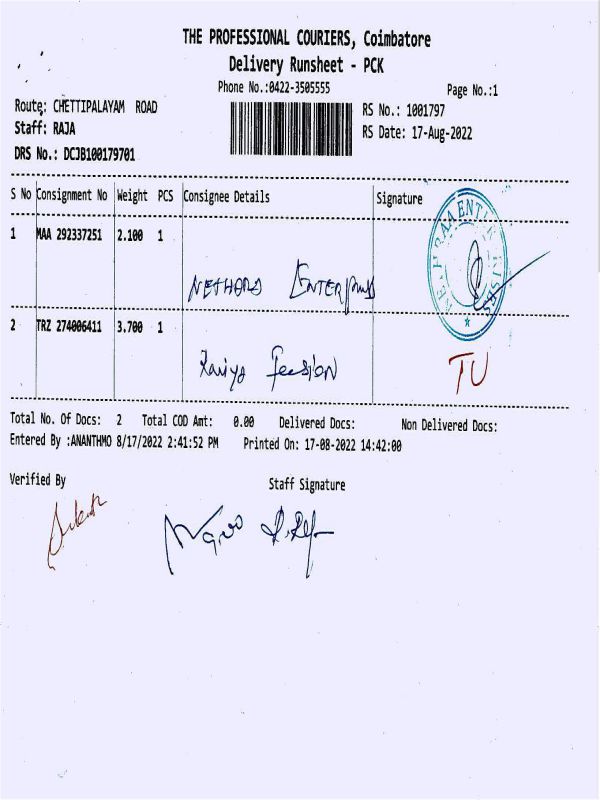 THE PROFESSIONAL COURIERS, Coimbatore
Delivery Runsheet - PCK
Phone No.:0422-3505555
Page No.:1
Route: CHETTIPALAYAM ROAD
RS No.: 1001797
Staff: RAJA
RS Date: 17-Aug-2022
DRS No.: DCJB100179701
S No Consignment No Weight PCS Consignee Details Signature
1 MAA 292337251 2.100 1
ENTERPRISES
2 TRZ 274006411 3.700 1
TU
Total No. Of Docs: 2 Total COD Amt: 0.00 Delivered Docs: Non Delivered Docs:
Entered By :ANANTHMO 8/17/2022 2:41:52 PM Printed On: 17-08-2022 14:42:00
Verified By Staff Signature